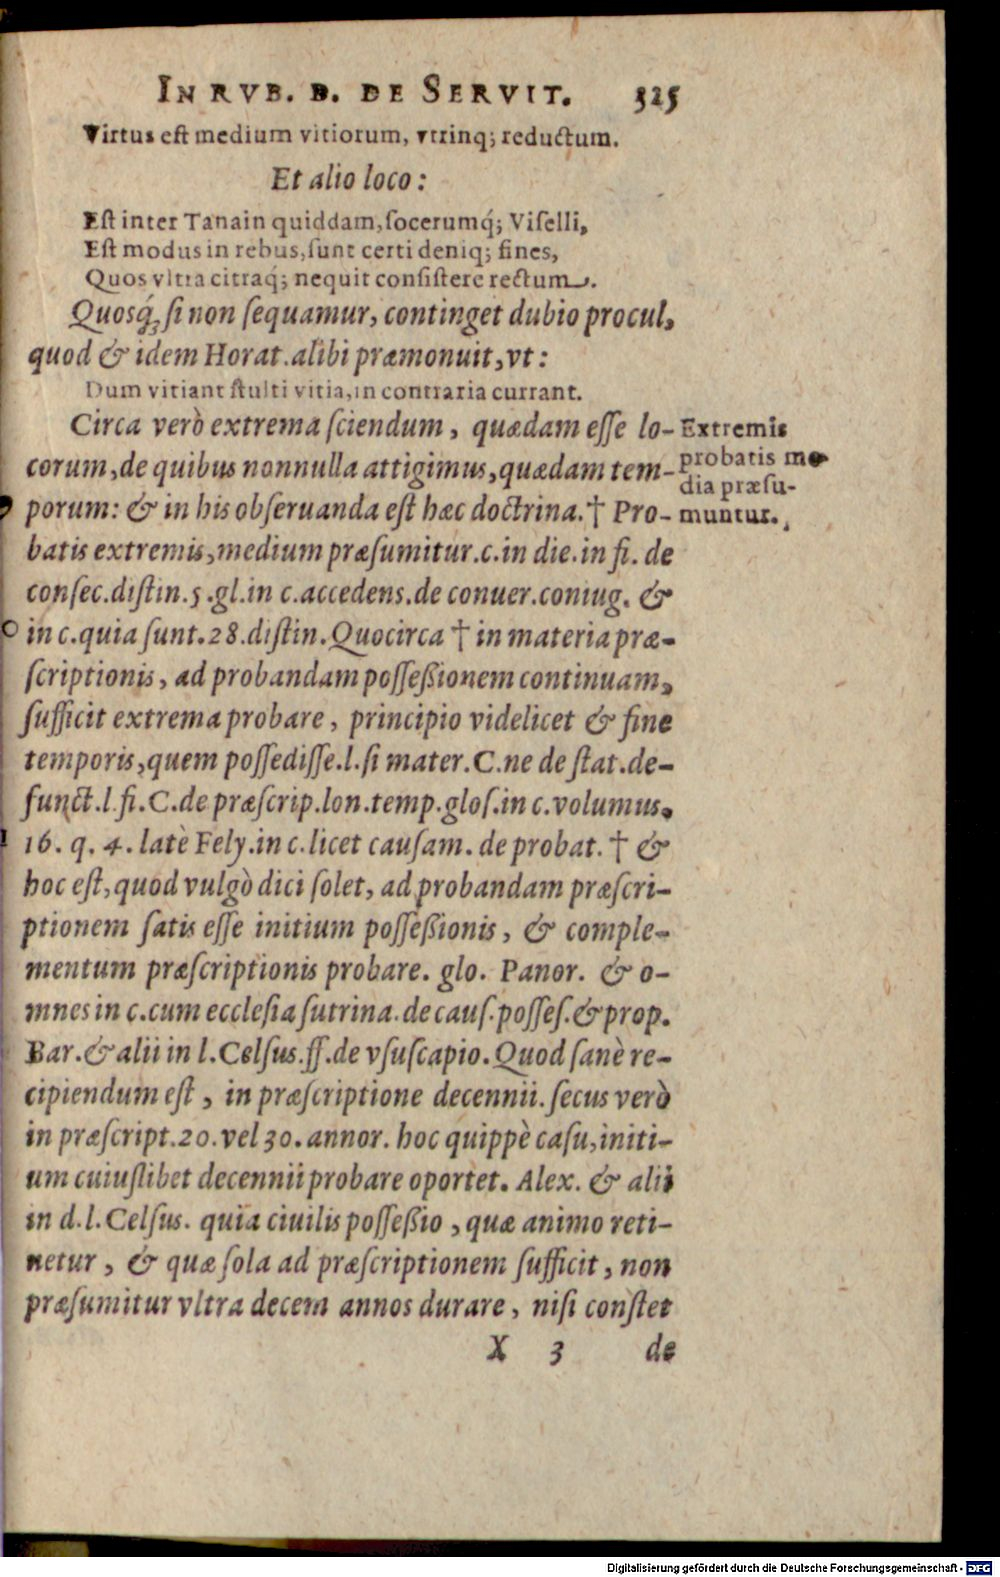 IN RVB. D. DE SERVIT. 325
Virtus eſt medium vitiorum, vtrinq; reductum.
Et alio loco:
Eſt inter Tanain quiddam, ſocerumq́; Viſelli,
Eſt modus in rebus, ſunt certi deniq; fines,
Quos vltra citraq́; nequit conſiſtere rectum.
Quosq́; ſi non ſequamur, continget dubio procul,
quod & idem Horat. alibi præmonuit, vt:
Dum vitiant ſtulti vitia, in contraria currant.
Circa verò extrema ſciendum, quædam eſſe lo-
corum, de quibus nonnulla attigimus, quædam tem-
porum: & in his obſeruanda eſt hæc doctrina. † Pro-
batis extremis, medium præſumitur. c. in die. in fi. de
conſec. diſtin. 5. gl. in c. accedens. de conuer. coniug. &
in c. quia ſunt. 28. diſtin. Quocirca † in materia præ-
ſcriptionis, ad probandam poſſeßionem continuam,
ſufficit extrema probare, principio videlicet & fine
temporis, quem poſſediſſe. l. ſi mater. C. ne de ſtat. de-
funct. l. fi. C. de præſcrip. lon. temp. gloſ. in c. volumus.
16. q. 4. latè Fely. in c. licet cauſam. de probat. † &
hoc eſt, quod vulgò dici ſolet, ad probandam præſcri-
ptionem ſatis eſſe initium poſſeßionis, & comple-
mentum præſcriptionis probare. glo. Panor. & o-
mnes in c. cum eccleſia ſutrina. de cauſ. poſſeſ. & prop.
Bar. & alii in l. Celſus. ff. de vſuſcapio. Quod ſanè re-
cipiendum eſt, in præſcriptione decennii. ſecus verò
in præſcript. 20. vel 30. annor. hoc quippè caſu, initi-
um cuiuſlibet decennii probare oportet. Alex. & alii
in d. l. Celſus. quia ciuilis poſſeßio, quæ animo reti-
netur, & quæ ſola ad præſcriptionem ſufficit, non
præſumitur vltra decem annos durare, niſi conſtet
X 3 de
Extremis
probatis me
dia præſu-
muntur.
Digitalisierung gefördert durch die Deutsche Forschungsgemeinschaft - DFG